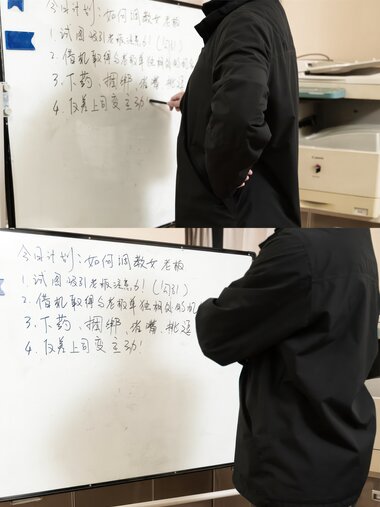 今日计划:如何调教女老板
1.试图吸引老板注意力!(勾引)
2.借机取得与老板单独相处的机
3.下药、捆绑、堵嘴、挑逗
4.仅差上司变主动
Canon
今日计划:如何调教女老板
1.试图吸引老板注意力!(勾引)
2.借机取得与老板单独相处的机
3.下药、捆绑、堵嘴、挑逗
4.仅差上司变主动!